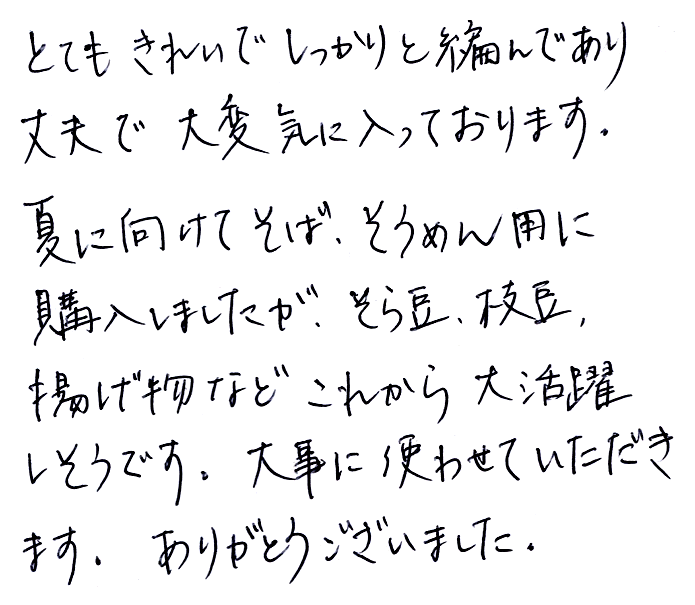 とてもきれいでしっかりと編んであり
丈夫で 大変気に入っております.
夏に向けてそば、そうめん用に
購入しましたが、そら豆、枝豆,
揚げ物など これから 大活躍
しそうです。大事に使わせていただき
ます. ありがとうございました.